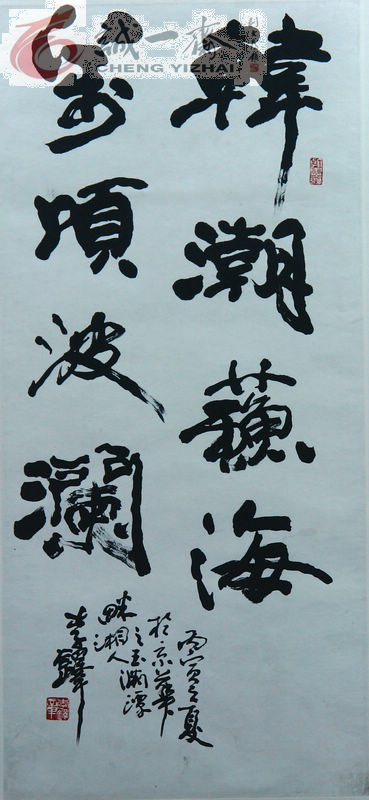 誠一斋
CHENG YIZHAI
韓潮蘓海
萬頃波瀾
丙寅之夏
於京華
之玉渊潭
畔湘人
李鐸